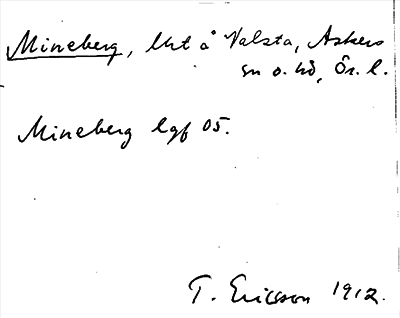 Mineberg, lht å Valsta, Askers
sn o. hd, Ör. l.
Mineberg lgf 05.
T. Ericsson 1912.